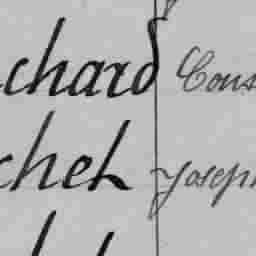 chard Cons
chet Joseph